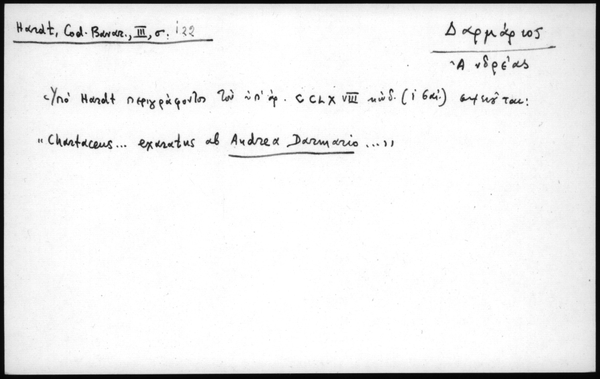 Hardt, Cod. Bavar., III, σ. 122
Δαρμάριος
Ἀνδρέας
Ὑπὸ Hardt περιγράφοντος τὸν ὑπ' ἀρ. CCLXVIII κώδ. (ις' αἰ.) σημειοῦται:
"Chartaceus... exaratus ab Andrea Darmario ..."